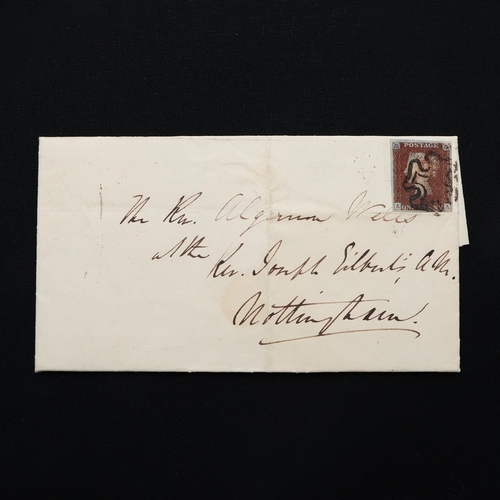 POSTAGE
The Rev. Algernon Wells
at the
Rev. Joseph Gilbert's, A.M.
Nottingham.